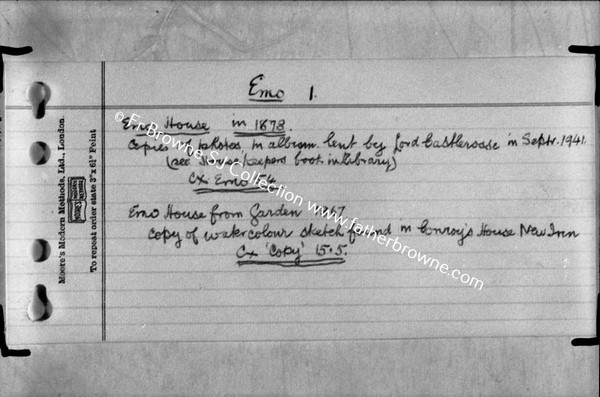 Emo 1.
Emo House in 1878.
Copies of photos, in album lent by Lord Castlerosse in Septr. 1941.
(see House keepers book in library)
Cx Emo
Emo House from Garden
copy of watercolour sketch found in Conroy's House New Inn
Cx 'Copy' 15.5.
Moore's Modern Methods, Ltd., London.
To repeat order state 3" x 6½" Feint
© Fr Browne SJ Collection www.fatherbrowne.com